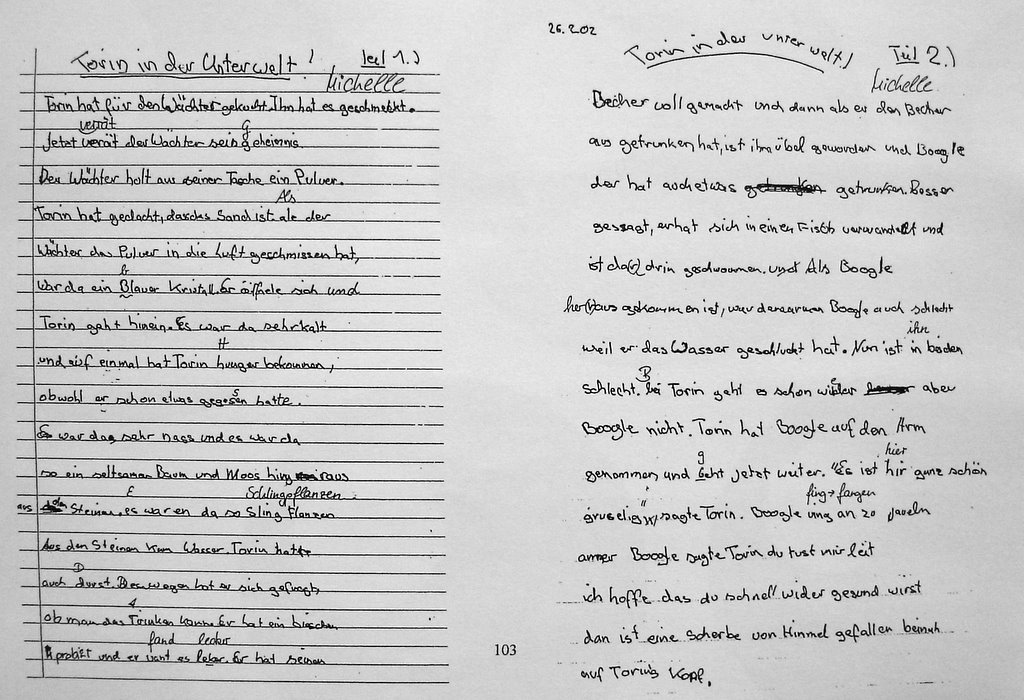 Torin in der Unterwelt! Teil 1.)
Michelle
Torin hat für den Wächter gekocht. Ihm hat es geschmeckt.
verrät G
Jetzt verät der Wächter sein geheimnis
Der Wächter holt aus seiner Tasche ein Pulver.
Als
Torin hat gedacht, das das Sand ist als der
Wächter das Pulver in die Luft geschmissen hat,
b
war da ein Blauer Kristall. Er öffnete sich und
Torin geht hinein. Es war da sehr kalt
H
und auf einmal hat Torin hunger bekommen,
s
obwohl er schon etwas gegesen hatte.
Es war das sehr nass und es war da
so ein seltsamer Baum und Moos hing raus
E Schlingpflanzen
aus den Steinen. es waren da so Sling Flanzen
Aus den Steinen kam Wasser. Torin hatte
D
auch durst. Deswegen hat er sich gefragt,
ob man das Trinken kann. Er hat ein bisschen
fand lecker
Probirt und er vant es leker. Er hat seinen
103
26.202
Torin in der Unterwelt! Teil 2.)
Michelle
Becher voll gemacht und dann als er den Becher
aus getrunken hat, ist ihm übel geworden und Boogle
der hat auch etwas getrunken getrunken. Besser
gesagt, er hat sich in einen Fisch verwandelt und
ist da(r) drin geschwommen. und Als Boogle
her(r)aus gekommen ist, war der arme Boogle auch schlecht
ihn
weil er das Wasser geschluckt hat. Nun ist in beiden
B e
schlecht. bei Torin geht es schon wider aber
Boogle nicht. Torin hat Boogle auf den Arm
g hier
genommen, und Geht jetzt weiter. "Es ist hir ganz schön
fing → fangen
gruselig", sagte Torin. Boogle ving an zu jaueln
armer Boogle sagte Torin du tust mir leit
ich hoffe das du schnell wider gesund wirst
dan ist eine Scherbe von Himmel gefallen beinah
auf Torins Kopf.